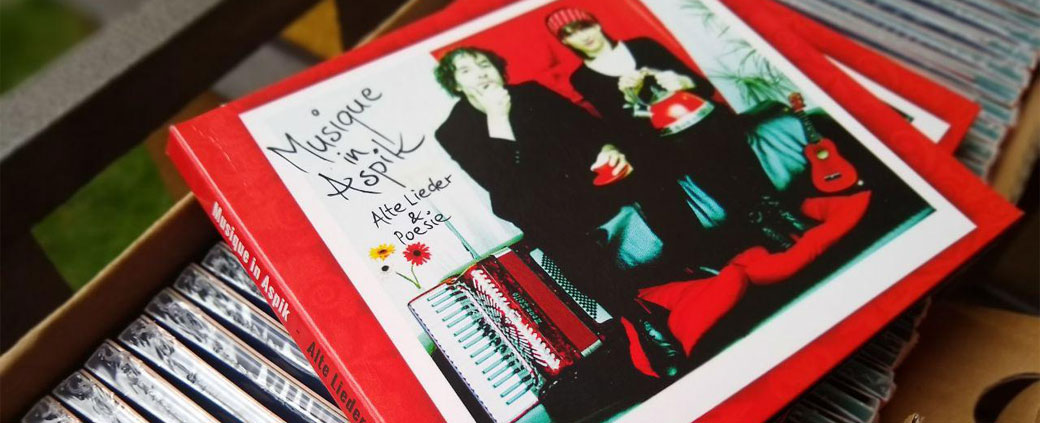 Musique
in
Aspik
Alte Lieder
&
Poesie
Musique in Aspik - Alte Lieder